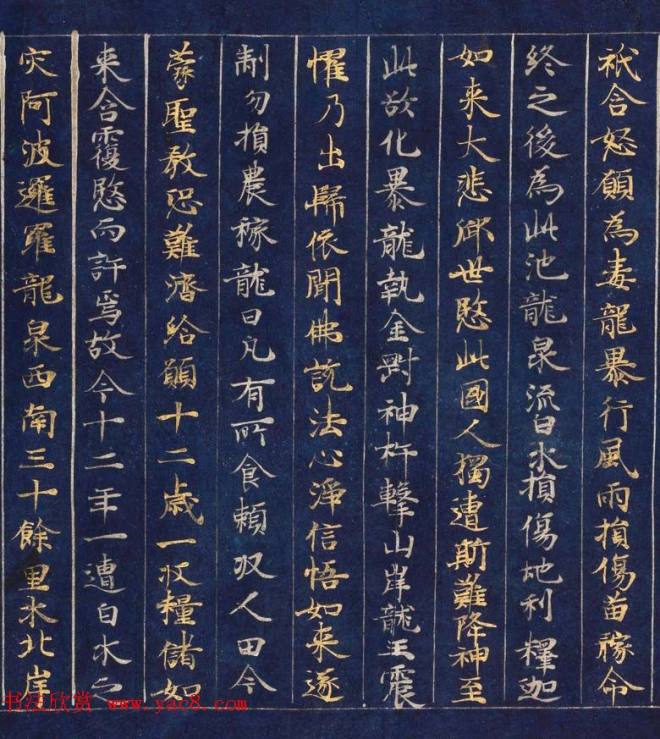 祇含怒願為毒龍暴行風雨損傷苗稼命
終之後為此池龍泉流白水損傷地利釋迦
如来大悲御世愍此國人獨遭斯難降神至
此欲化暴龍執金對神杵擊山岸龍王震
懼乃出歸依聞佛說法心淨信悟如来遂
制勿損農稼龍曰凡有所食賴収人田今
蒙聖教恐難濟給願十二歳一収糧儲如
来含覆愍而許焉故今十二年一遭白水之
灾阿波邏羅龍泉西南三十餘里水北岸
书法欣赏 www.yac8.com